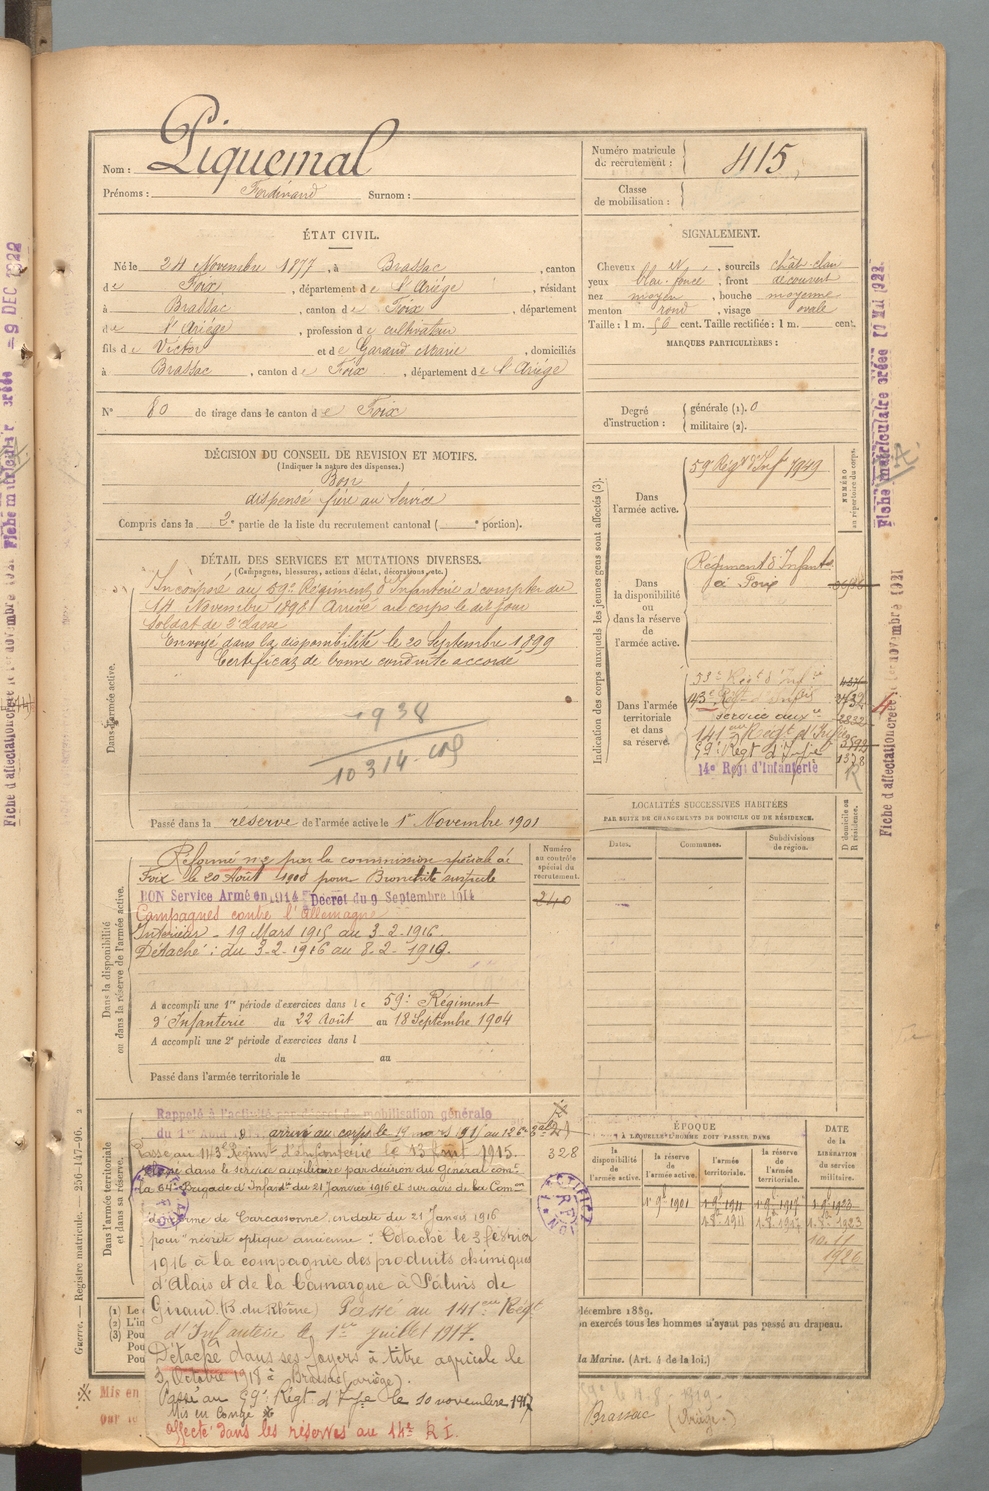 Nom : Piquemal
Prénoms : Ferdinand Surnom :
Numéro matricule du recrutement : 415
Classe de mobilisation :
ÉTAT CIVIL.
Né le 24 Novembre 1877, à Brassac, canton
de Foix, département de l'Ariège, résidant
à Brassac, canton de Foix, département
de l'Ariège, profession de cultivateur
fils de Victor et de Garaud Marie, domiciliés
à Brassac, canton de Foix, département de l'Ariège
N° 80 de tirage dans le canton de Foix
SIGNALEMENT.
Cheveux et sourcils chât. clair
yeux bleu foncé, front découvert
nez moyen, bouche moyenne
menton rond, visage ovale
Taille : 1 m. 56 cent. Taille rectifiée : 1 m. cent.
MARQUES PARTICULIÈRES :
Degré d'instruction : générale (1). 0
militaire (2).
DÉCISION DU CONSEIL DE REVISION ET MOTIFS.
(Indiquer la nature des dispenses.)
Bon
dispensé frère au service
Compris dans la 2e partie de la liste du recrutement cantonal ( e portion).
DÉTAIL DES SERVICES ET MUTATIONS DIVERSES.
(Campagnes, blessures, actions d'éclat, décorations, etc.)
Dans l'armée active.
Incorporé au 59e Régiment d'Infanterie à compter du
14 Novembre 1898 Arrivé au corps le dit jour
Soldat de 2e classe
Envoyé dans la disponibilité le 20 Septembre 1899
Certificat de bonne conduite accordé
1938
10314
Passé dans la réserve de l'armée active le 1er Novembre 1901
Indication des corps auxquels les jeunes gens sont affectés (3).
NUMÉRO au répertoire du corps.
Dans l'armée active.
59e Régt d'Inf 1949
Dans la disponibilité ou dans la réserve de l'armée active.
Régiment d'Infant
à Foix
Dans l'armée territoriale et dans sa réserve.
143e Régt d'Infie
Service auxre
141e Régt d'Inf
59e Régt d'Infie 1378
14e Régt d'Infanterie
LOCALITÉS SUCCESSIVES HABITÉES
PAR SUITE DE CHANGEMENTS DE DOMICILE OU DE RÉSIDENCE.
Dates. Communes. Subdivisions de région. D domicile ou R résidence.
Dans la disponibilité ou dans la réserve de l'armée active.
Numéro au contrôle spécial du recrutement.
240
Réformé n°2 par la commission spéciale de
Foix le 20 Août 1908 pour Bronchite suspecte
BON Service Armé en 1914 Décret du 9 Septembre 1914
Campagnes contre l'Allemagne
Intérieur - 19 Mars 1915 au 3-2-1916
Détaché : du 3-2-1916 au 8-2-1919.
A accompli une 1re période d'exercices dans le 59e Régiment
d'Infanterie du 22 Août au 18 Septembre 1904
A accompli une 2e période d'exercices dans l
du au
Passé dans l'armée territoriale le
Dans l'armée territoriale et dans sa réserve.
Rappelé à l'activité par décret de mobilisation générale
du 1er arrivé au corps le 19 mars 1915 au 126e
Passé au 143e Régimt d'Infanterie le 13 1915. 328
dans le service auxiliaire par décision du Général comt
la 64e Brigade d'Infantie du 21 Janvier 1916 et sur avis de la Comon
de Carcassonne, en date du 21 Janvier 1916
pour "névrite optique ancienne". Détaché le 3 février
1916 à la compagnie des produits chimiques
d'Alais et de la Camargue à Salins de
Giraud (B. du Rhône) Passé au 141e Régt
d'Infanterie le 1er juillet 1917.
Détaché dans ses foyers à titre agricole le
3 Octobre 1918 à Brassac (Ariège).
Passé au 59e Régt d'Infie le 10 novembre 1917
Mis en congé
affecté dans les réserves au 14e R.I.
ÉPOQUE
À LAQUELLE L'HOMME DOIT PASSER DANS
la disponibilité de l'armée active. la réserve de l'armée active. l'armée territoriale. la réserve de l'armée territoriale.
DATE de la LIBÉRATION du service militaire.
1er 9e 1901 1er 9e 1911
1923
décembre 1889.
on exercés tous les hommes n'ayant pas passé au drapeau.
la Marine. (Art. 4 de la loi.)
Brassac (Ariège.)
(1) Le
(2) L'in
(3) Pou
Pou
Pou
Mis en
Guerre. — Registre matricule. 256-147-96.
9 DEC 1922
Fiche matriculaire créée
Fiche matriculaire créée 17 MAI 1922